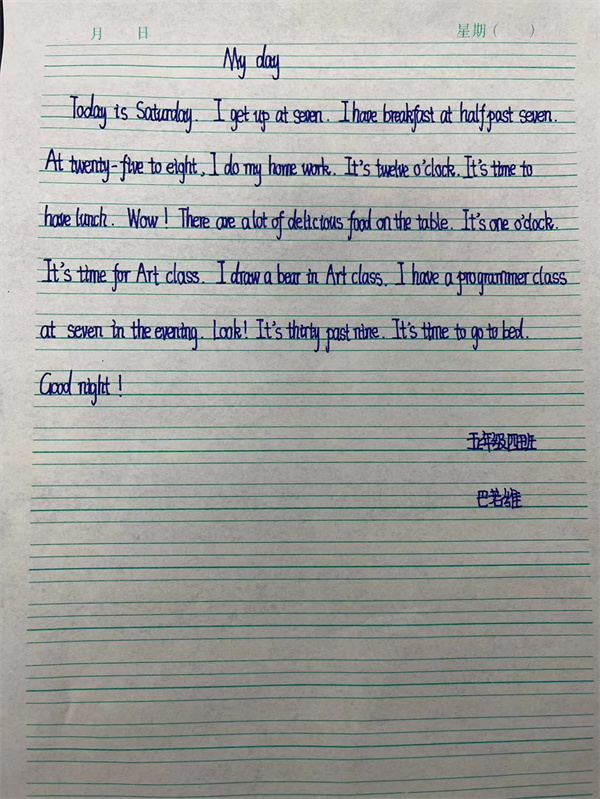 月 日 星期( )
My day
Today is Saturday. I get up at seven. I have breakfast at half past seven.
At twenty-five to eight, I do my home work. It's twelve o'clock. It's time to
have lunch. Wow! There are a lot of delicious food on the table. It's one o'clock.
It's time for Art class. I draw a bear in Art class. I have a programmer class
at seven in the evening. Look! It's thirty past nine. It's time to go to bed.
Good night!
五年级四班
巴若雄